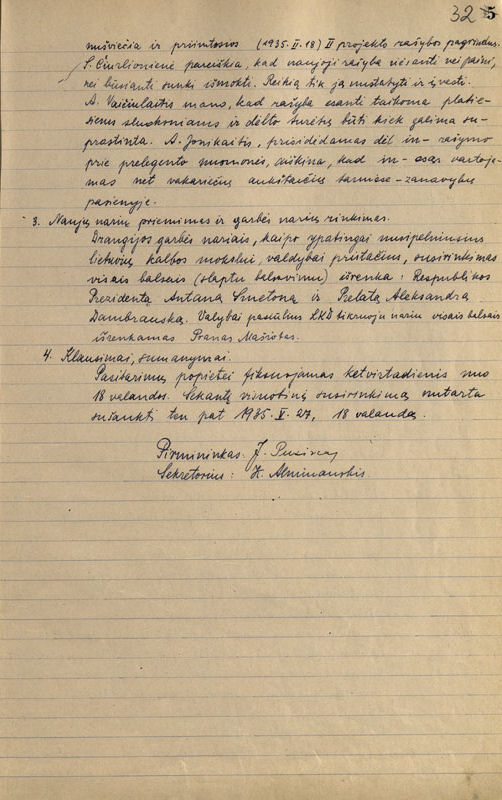 32 5
nušviečia ir priimtosios (1935.II.18) II projekto rašybos pagrindus.
S. Čiurlionienė pareiškia, kad naujoji rašyba nesanti nei paini,
nei būsianti sunki išmokti. Reikią tik ją nustatyti ir įvesti.
A. Vaičiulaitis mano, kad rašyba esanti taikoma platie-
siems sluoksniams ir dėlto turėtų būti kiek galima su-
prastinta. A. Jonikaitis, prisidėdamas dėl in- rašymo
prie prelegento nuomonės, aiškina, kad in- esąs vartoja-
mas net vakariečių aukštaičių tarmėse - zanavykų
pašonyje.
3. Naujų narių priėmimas ir garbės narių rinkimas.
Draugijos garbės nariais, kaipo ypatingai nusipelniusius
lietuvių kalbos mokslui, valdybai pristačius, susirinkimas
visais balsais (slaptu balsavimu) išrenka: Respublikos
Prezidentą Antaną Smetoną ir Prelatą Aleksandrą
Dambrauską. Valdybai pasiūlius LKD tikruoju nariu visais balsais
išrenkamas Pranas Mašiotas.
4. Klausimai, sumanymai.
Pasitarimų popiečiai fiksuojamas ketvirtadienis nuo
18 valandos. Sekantį visuotinį susirinkimą nutarta
sušaukti ten pat 1935.V.27, 18 valandą.
Pirmininkas: J.
Sekretorius: